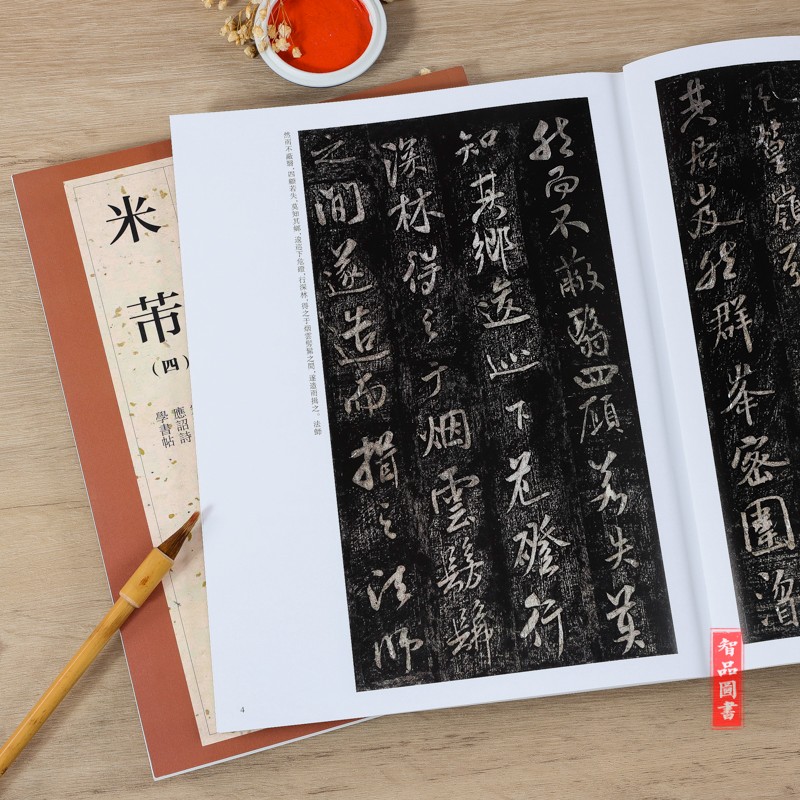 篁嶺引
其居岌然群峯密圍
然而不蔽翳四顧若失莫
知其鄉逡巡下危磴行
深林得之于烟雲髣髴
之間遂造而揖之法師
然而不蔽翳，四顧若失，莫知其鄉，逡巡下危磴，行深林，得之于烟雲髣髴之間，遂造而揖之。法師
4
米芾
（四）
應詔詩
學書帖
智品圖書